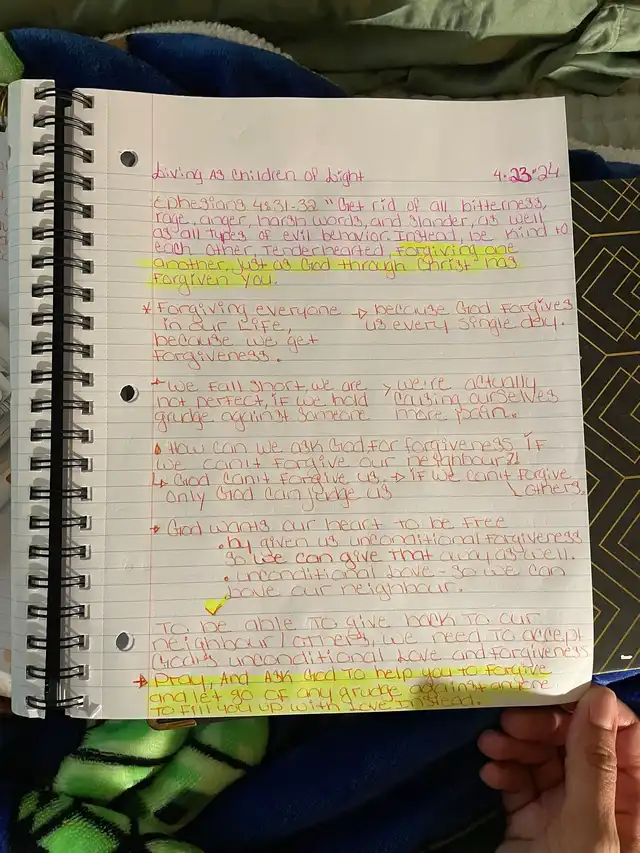 Living As Children of Light 4.23.24
Ephesians 4:31-32 "Get rid of all bitterness,
rage, anger, harsh words, and slander, as well
as all types of evil behavior. Instead, be kind to
each other, Tenderhearted, forgiving one
another, just as God through Christ has
forgiven you.
* Forgiving everyone → because God forgives
in our life, us every single day.
because we get
forgiveness.
→ We fall short we are > we're actually
not perfect, if we hold causing ourselves
grudge against someone more pain.
How can we ask God for forgiveness, if
we can't forgive our neighbour?!
↳ God can't forgive us. → if we can't forgive
only God can judge us others.
→ God wants our heart to be free
• by given us unconditional forgiveness
so we can give that away as well.
• unconditional love - so we can
love our neighbour.
To be able to give back to our
neighbour/others, we need to accept
God's unconditional love and forgiveness
→ Pray, And ask God to help you to forgive
and let go of any grudge against anyone
to fill you up with love instead.